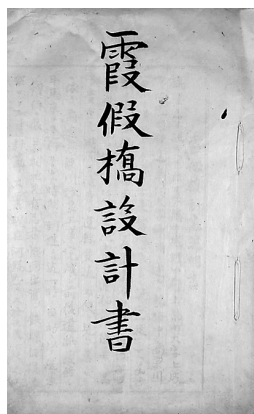 霞假橋設計書